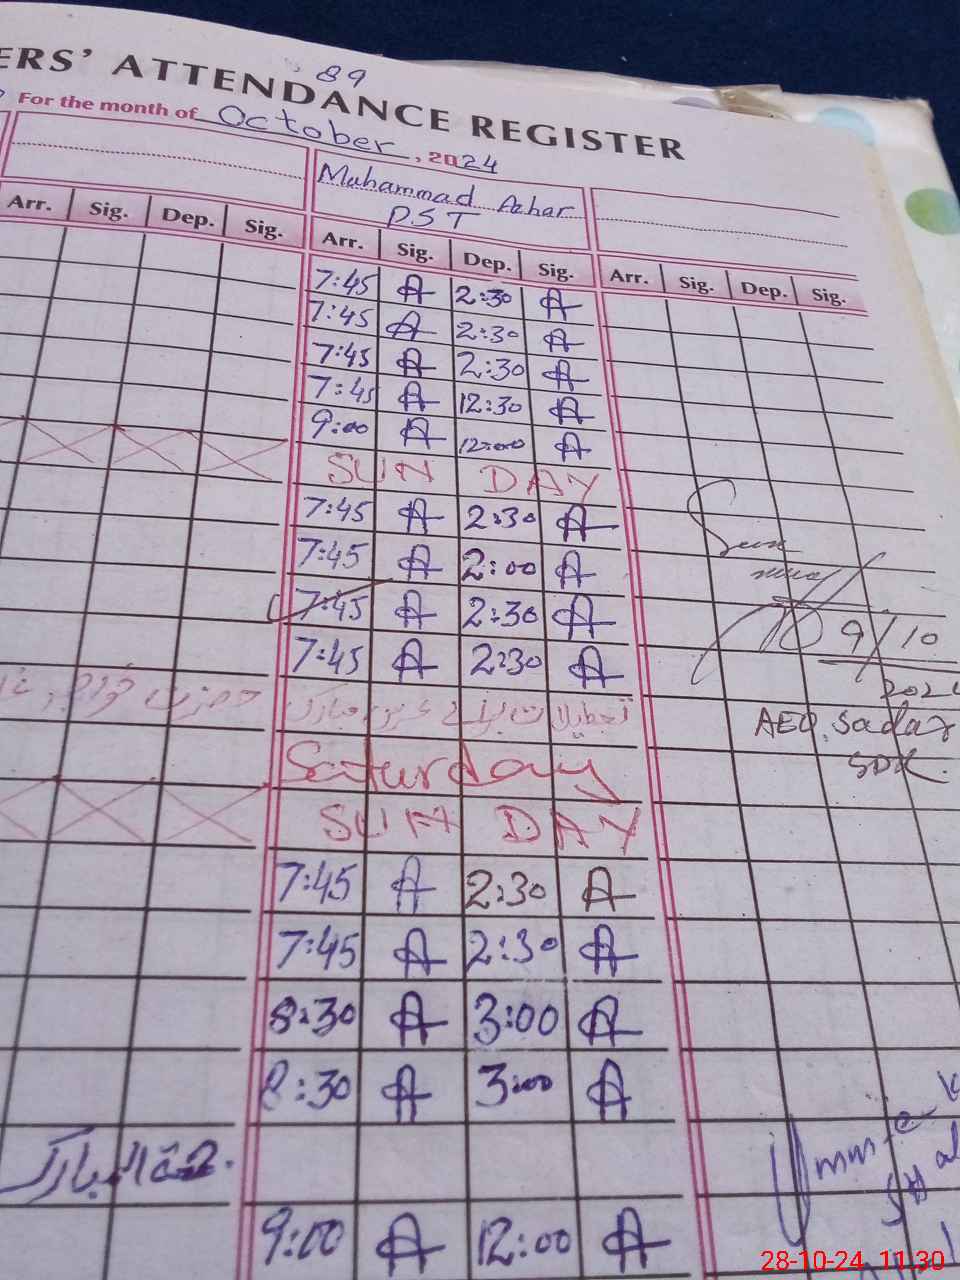 89
ERS' ATTENDANCE REGISTER
For the month of October, 2024
Muhammad Azhar
PST
Arr. Sig. Dep. Sig. Arr. Sig. Dep. Sig. Arr. Sig. Dep. Sig.
7:45 A 2:30 A
7:45 A 2:30 A
7:45 A 2:30 A
7:45 A 12:30 A
9:00 A 12:00 A
SUN DAY
7:45 A 2:30 A
7:45 A 2:00 A
7:45 A 2:30 A
9/10
7:45 A 2:30 A
2024
تعطیلات عرس مبارک حضرت
AEO, Sadar
SDK.
Saturday
SUN DAY
7:45 A 2:30 A
7:45 A 2:30 A
8:30 A 3:00 A
8:30 A 3:00 A
المبارک
9:00 A 12:00 A
28-10-24 11.30